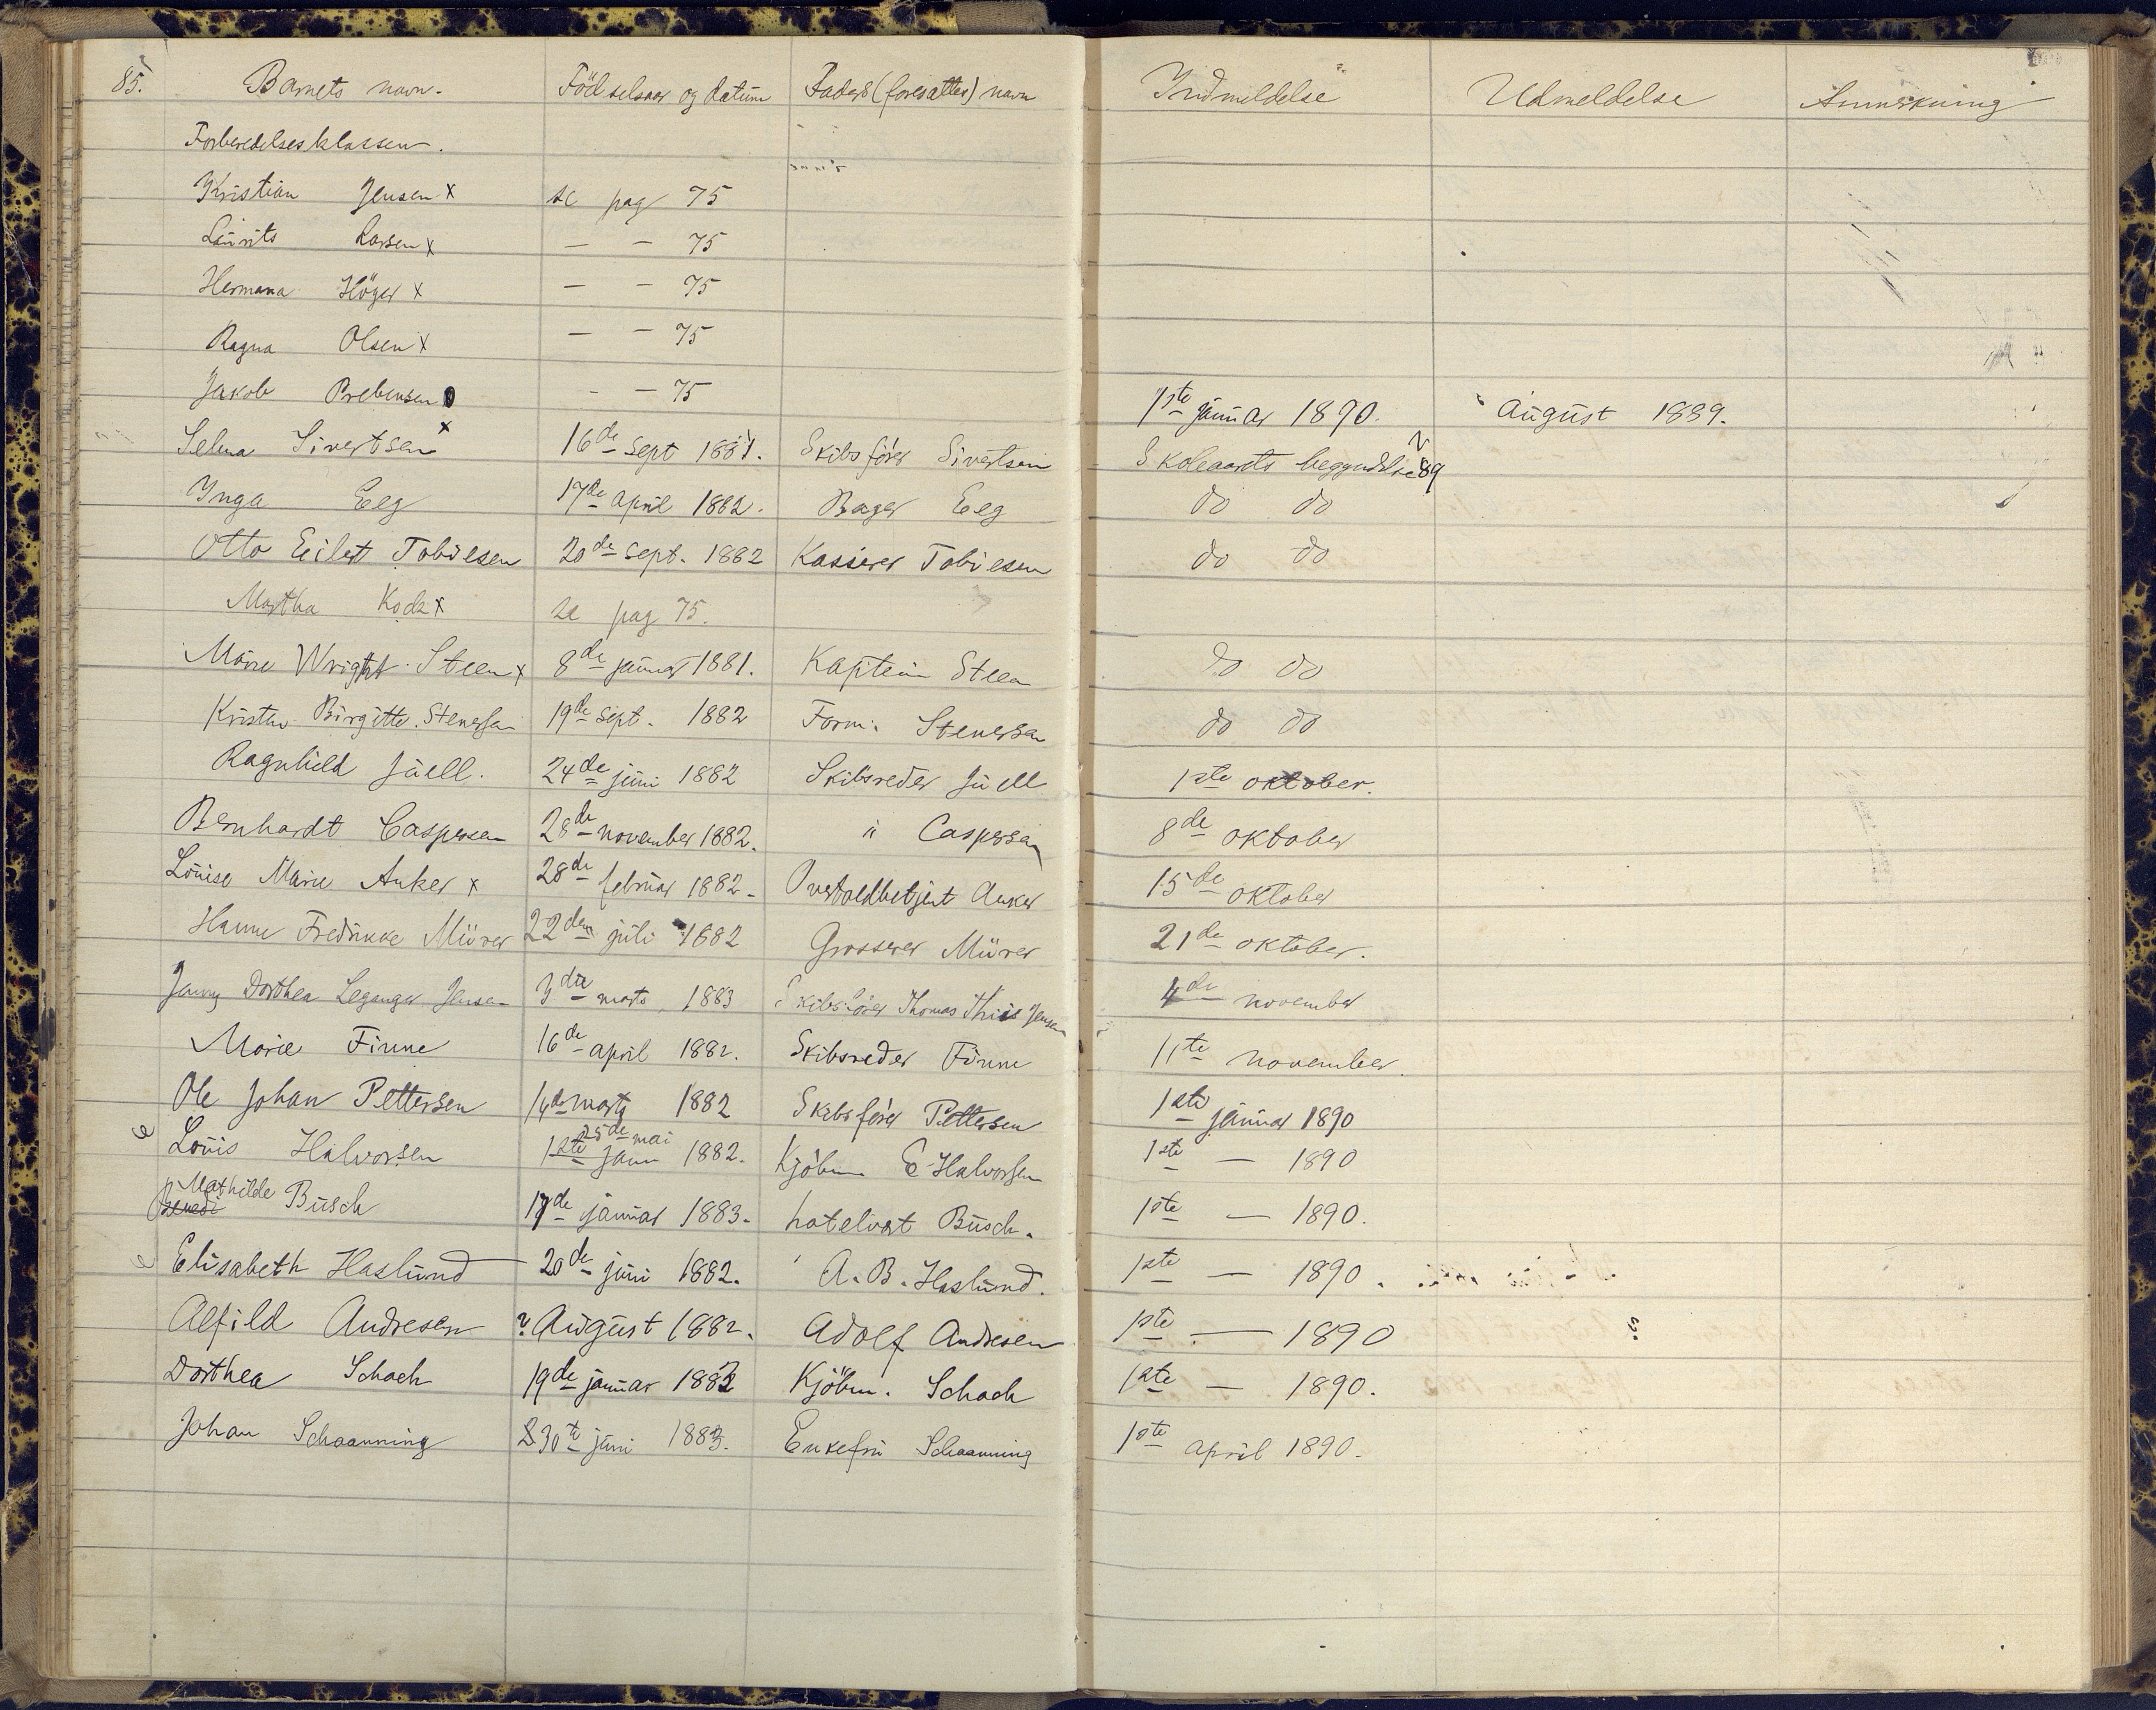 85. Barnets navn. Födselsaar og datum Faders (foresattes) navn Indmeldelse Udmeldelse Anmerkning
Forberedelsesklassen.
Kristian Jensen x se pag 75
Laurits Larsen x — — 75
Hermana Höyer x — — 75
Ragna Olsen x — — 75
Jakob Prebensen - — 75 1ste januar 1890. August 1889.
Selma Sivertsen x 16de sept 1881. Skibsförer Sivertsen Skoleaarets begyndelse 89
Inga Eeg 17de april 1882. Bager Eeg do do
Otto Eilert Tobiesen 20de sept. 1882 Kasserer Tobiesen do do
Martha Koch x se pag 75.
Marie Wright Steen x 8de januar 1881. Kaptein Steen do do
Kristine Birgitte Stenersen 19de sept. 1882 Form. Stenersen do do
Ragnhild Juell. 24de juni 1882 Skibsreder Juell 1ste oktober.
Bernhardt Caspersen 28de november 1882. " Caspersen 8de oktober
Louise Marie Anker x 28de februar 1882- Overtoldbetjent Anker 15de oktober
Hanne Fredrikke Mürer 22den juli 1882 Grosserer Mürer 21de oktober.
Jenny Dorthea Leganger Jensen 3die marts 1883 Skibsförer Thomas Thiis Jensen 4de november
Marie Finne 16de april 1882. Skibsreder Finne 11te november.
Ole Johan Pettersen 14de marts 1882 Skibsförer Pettersen 1ste januar 1890
25de mai
Louis Halvorsen 1ste janu 1882. Kjöbm E Halvorsen 1ste — 1890
Mathilde
Benedi Busch 17de januar 1883. hotelvert Busch. 1ste — 1890.
Elisabeth Haslund 20de juni 1882. A. B. Haslund. 1ste — 1890.
Alfild Andresen ? August 1882. Adolf Andresen 1ste — 1890
Dorthea Schach 19de januar 1882 Kjöbm. Schach 1ste — 1890.
Johan Schaanning 30te juni 1883. Enkefru Schaanning 1ste april 1890.